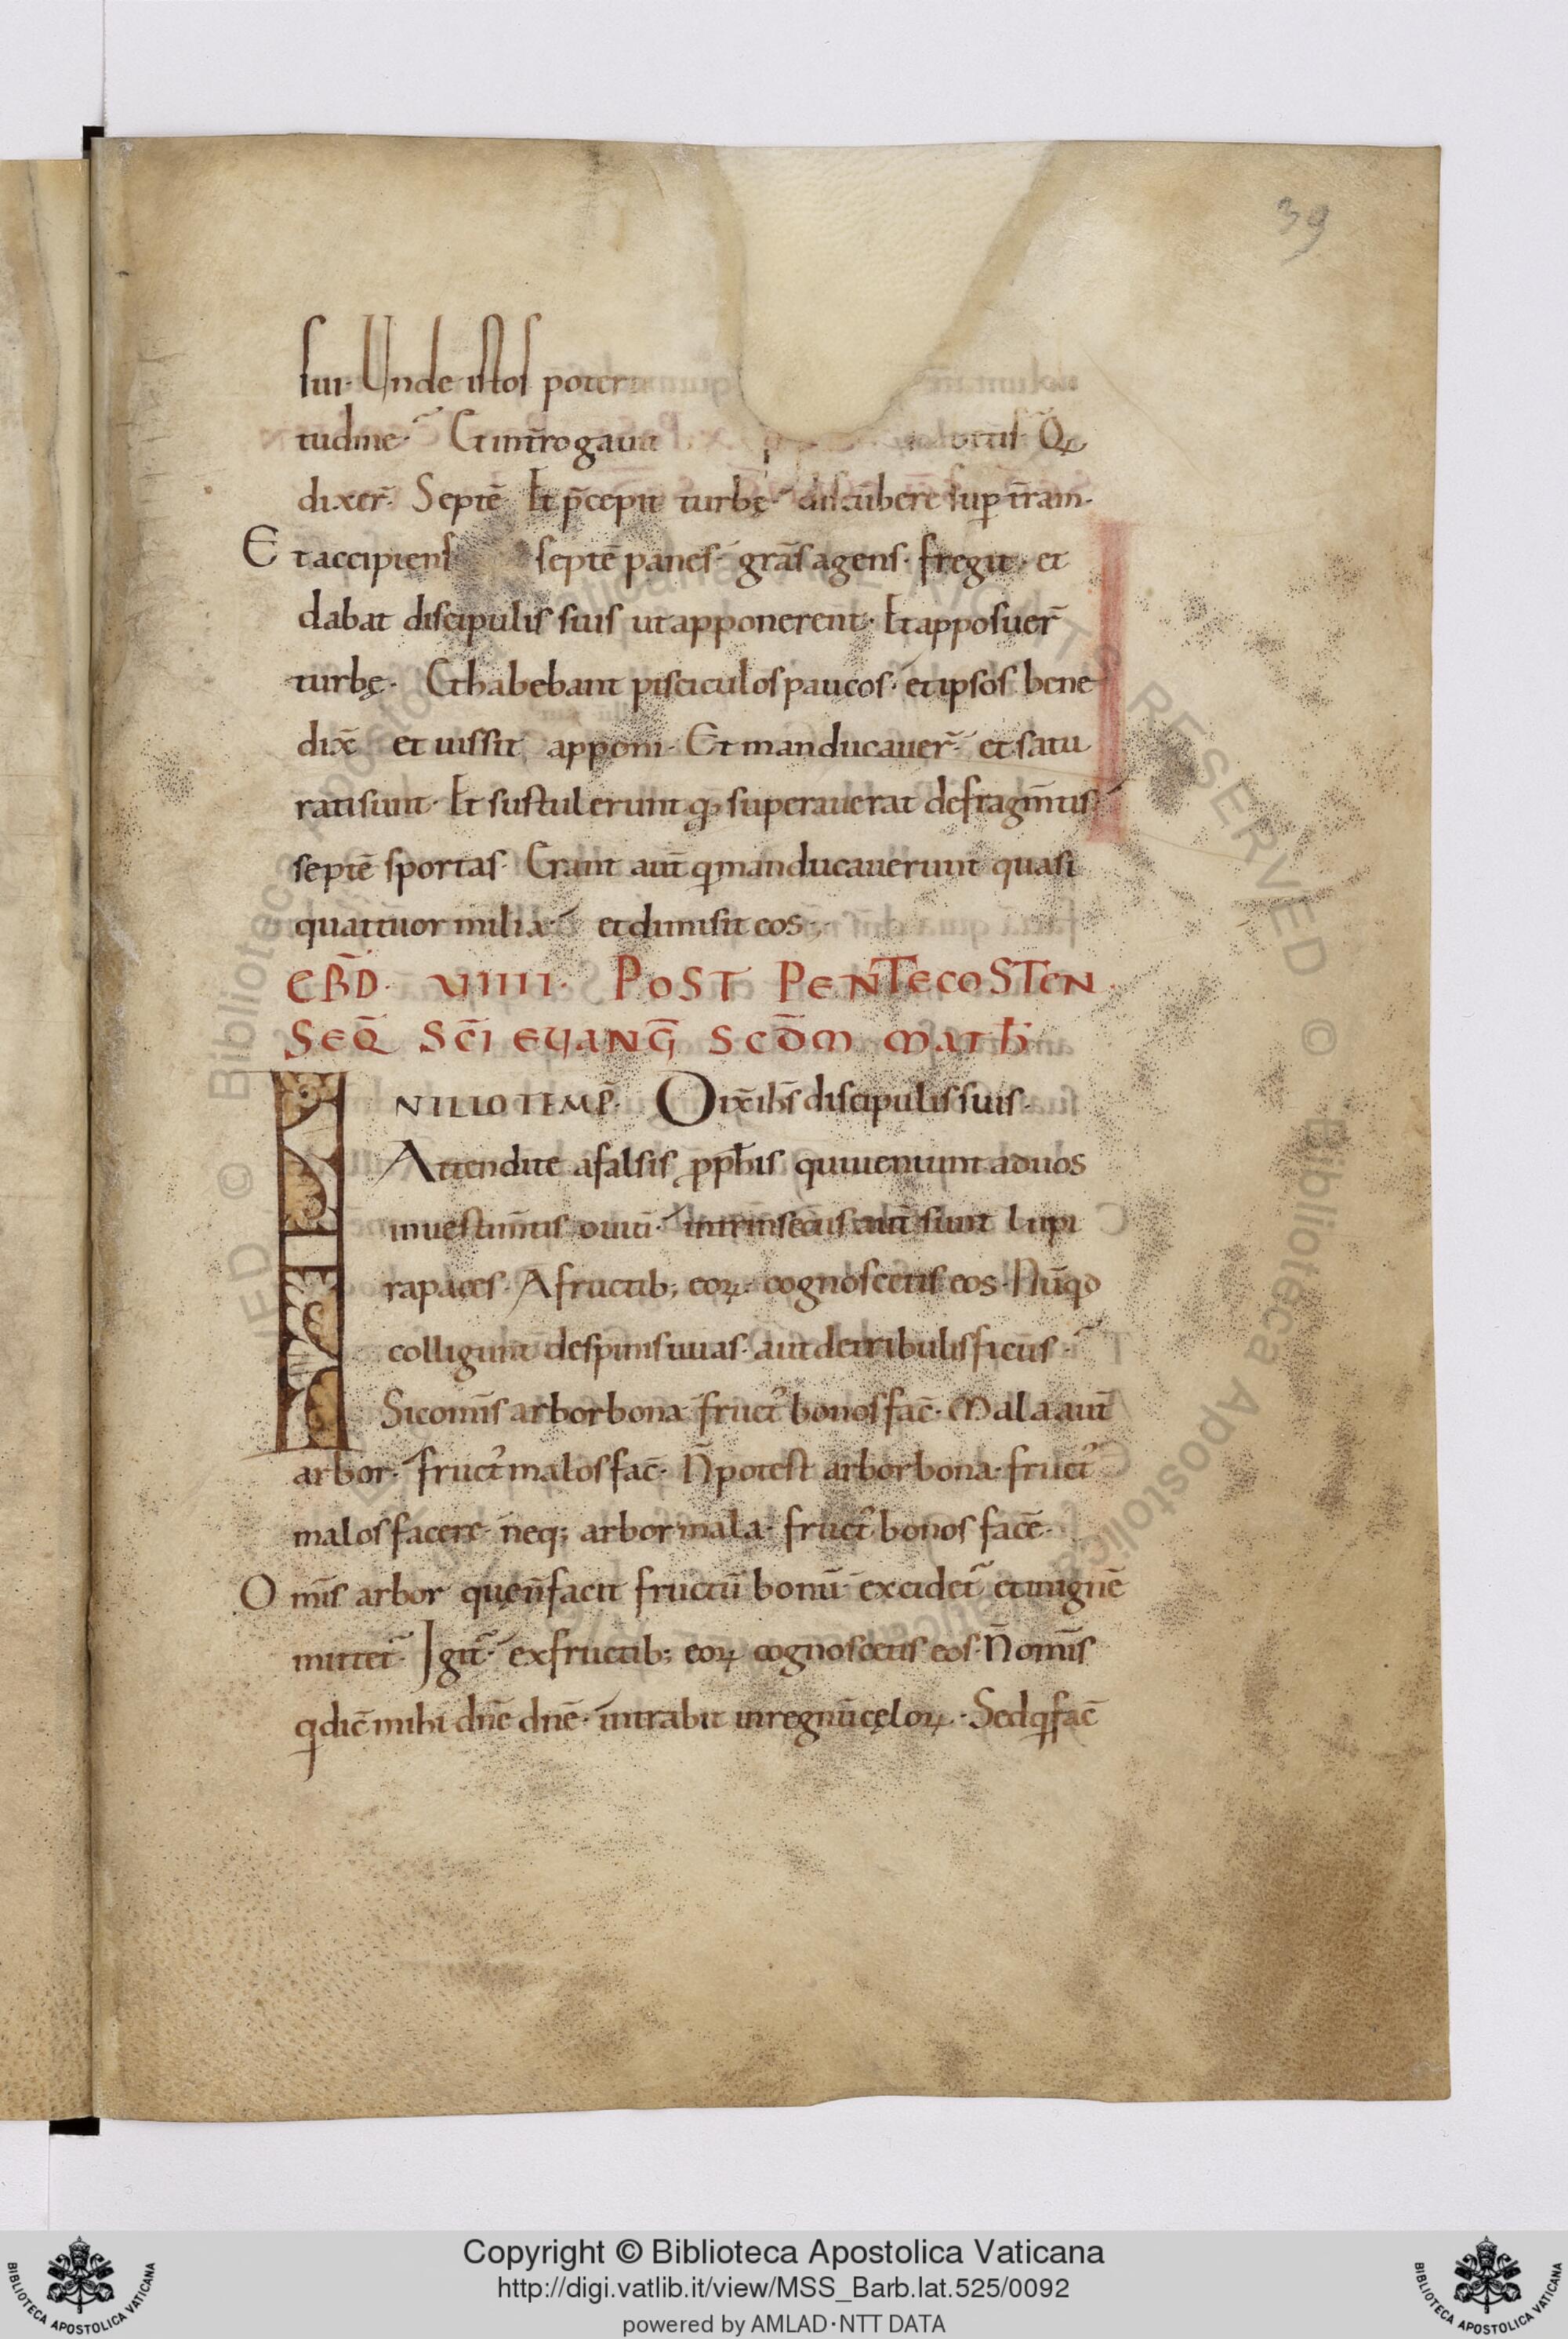 39
sui· Unde istos poter
tudine· Et intr̄rogauit
dixer̄· Septē· Et p̄cepit turbę· discūbere sup̱ tr̄am·
Et accipiens septē panes· grās agens· fregit· et
dabat discipulis suis ut apponerent· Et apposuer̄
turbę· Et habebant pisciculos paucos· et ipsos bene
dix̄ et iussit apponi· Et manducauer̄· et satu
rati sunt· Et sustulerunt qđ superauerat de fragm̄tis
septē sportas· Erant aut̄ q manducauerunt quasi
quattuor milia· et dimisit eos·
EBD̄· VIIII· POST PENTECOSTEN·
SEQ̄ SC̄I EUANḠ SCD̄M MATH̄
IN ILLO TEMP̄· Dix̄ ih̄s discipulis suis·
Attendite a falsis p̱ph̄is qui ueniunt ad uos
in uestim̄tis ouiū· intrinsecus aut̄ sunt lupi
rapaces· A fructib; eoꝝ· cognoscetis eos· Nūqd
colligunt de spinis uuas· aut de tribulis ficus·
Sic om̄is arbor bona fruct᾽ bonos fac̄· Mala aut̄
arbor· fruct᾽ malos fac̄· N̄ potest arbor bona· fruct᾽
malos facere· neq; arbor mala· fruct᾽ bonos facē·
Om̄is arbor quę n̄ facit fructū bonū· excidet᷑ et in ignē
mittet᷑· Igit᷑· ex fructib; eoꝝ cognoscetis eos· N̄ om̄is
q dic̄ mihi dn̄e dn̄e· intrabit in regnū cęloꝝ· Sed q fac̄
Copyright © Biblioteca Apostolica Vaticana
http://digi.vatlib.it/view/MSS_Barb.lat.525/0092
powered by AMLAD·NTT DATA
BIBLIOTECA APOSTOLICA VATICANA
BIBLIOTECA APOSTOLICA VATICANA